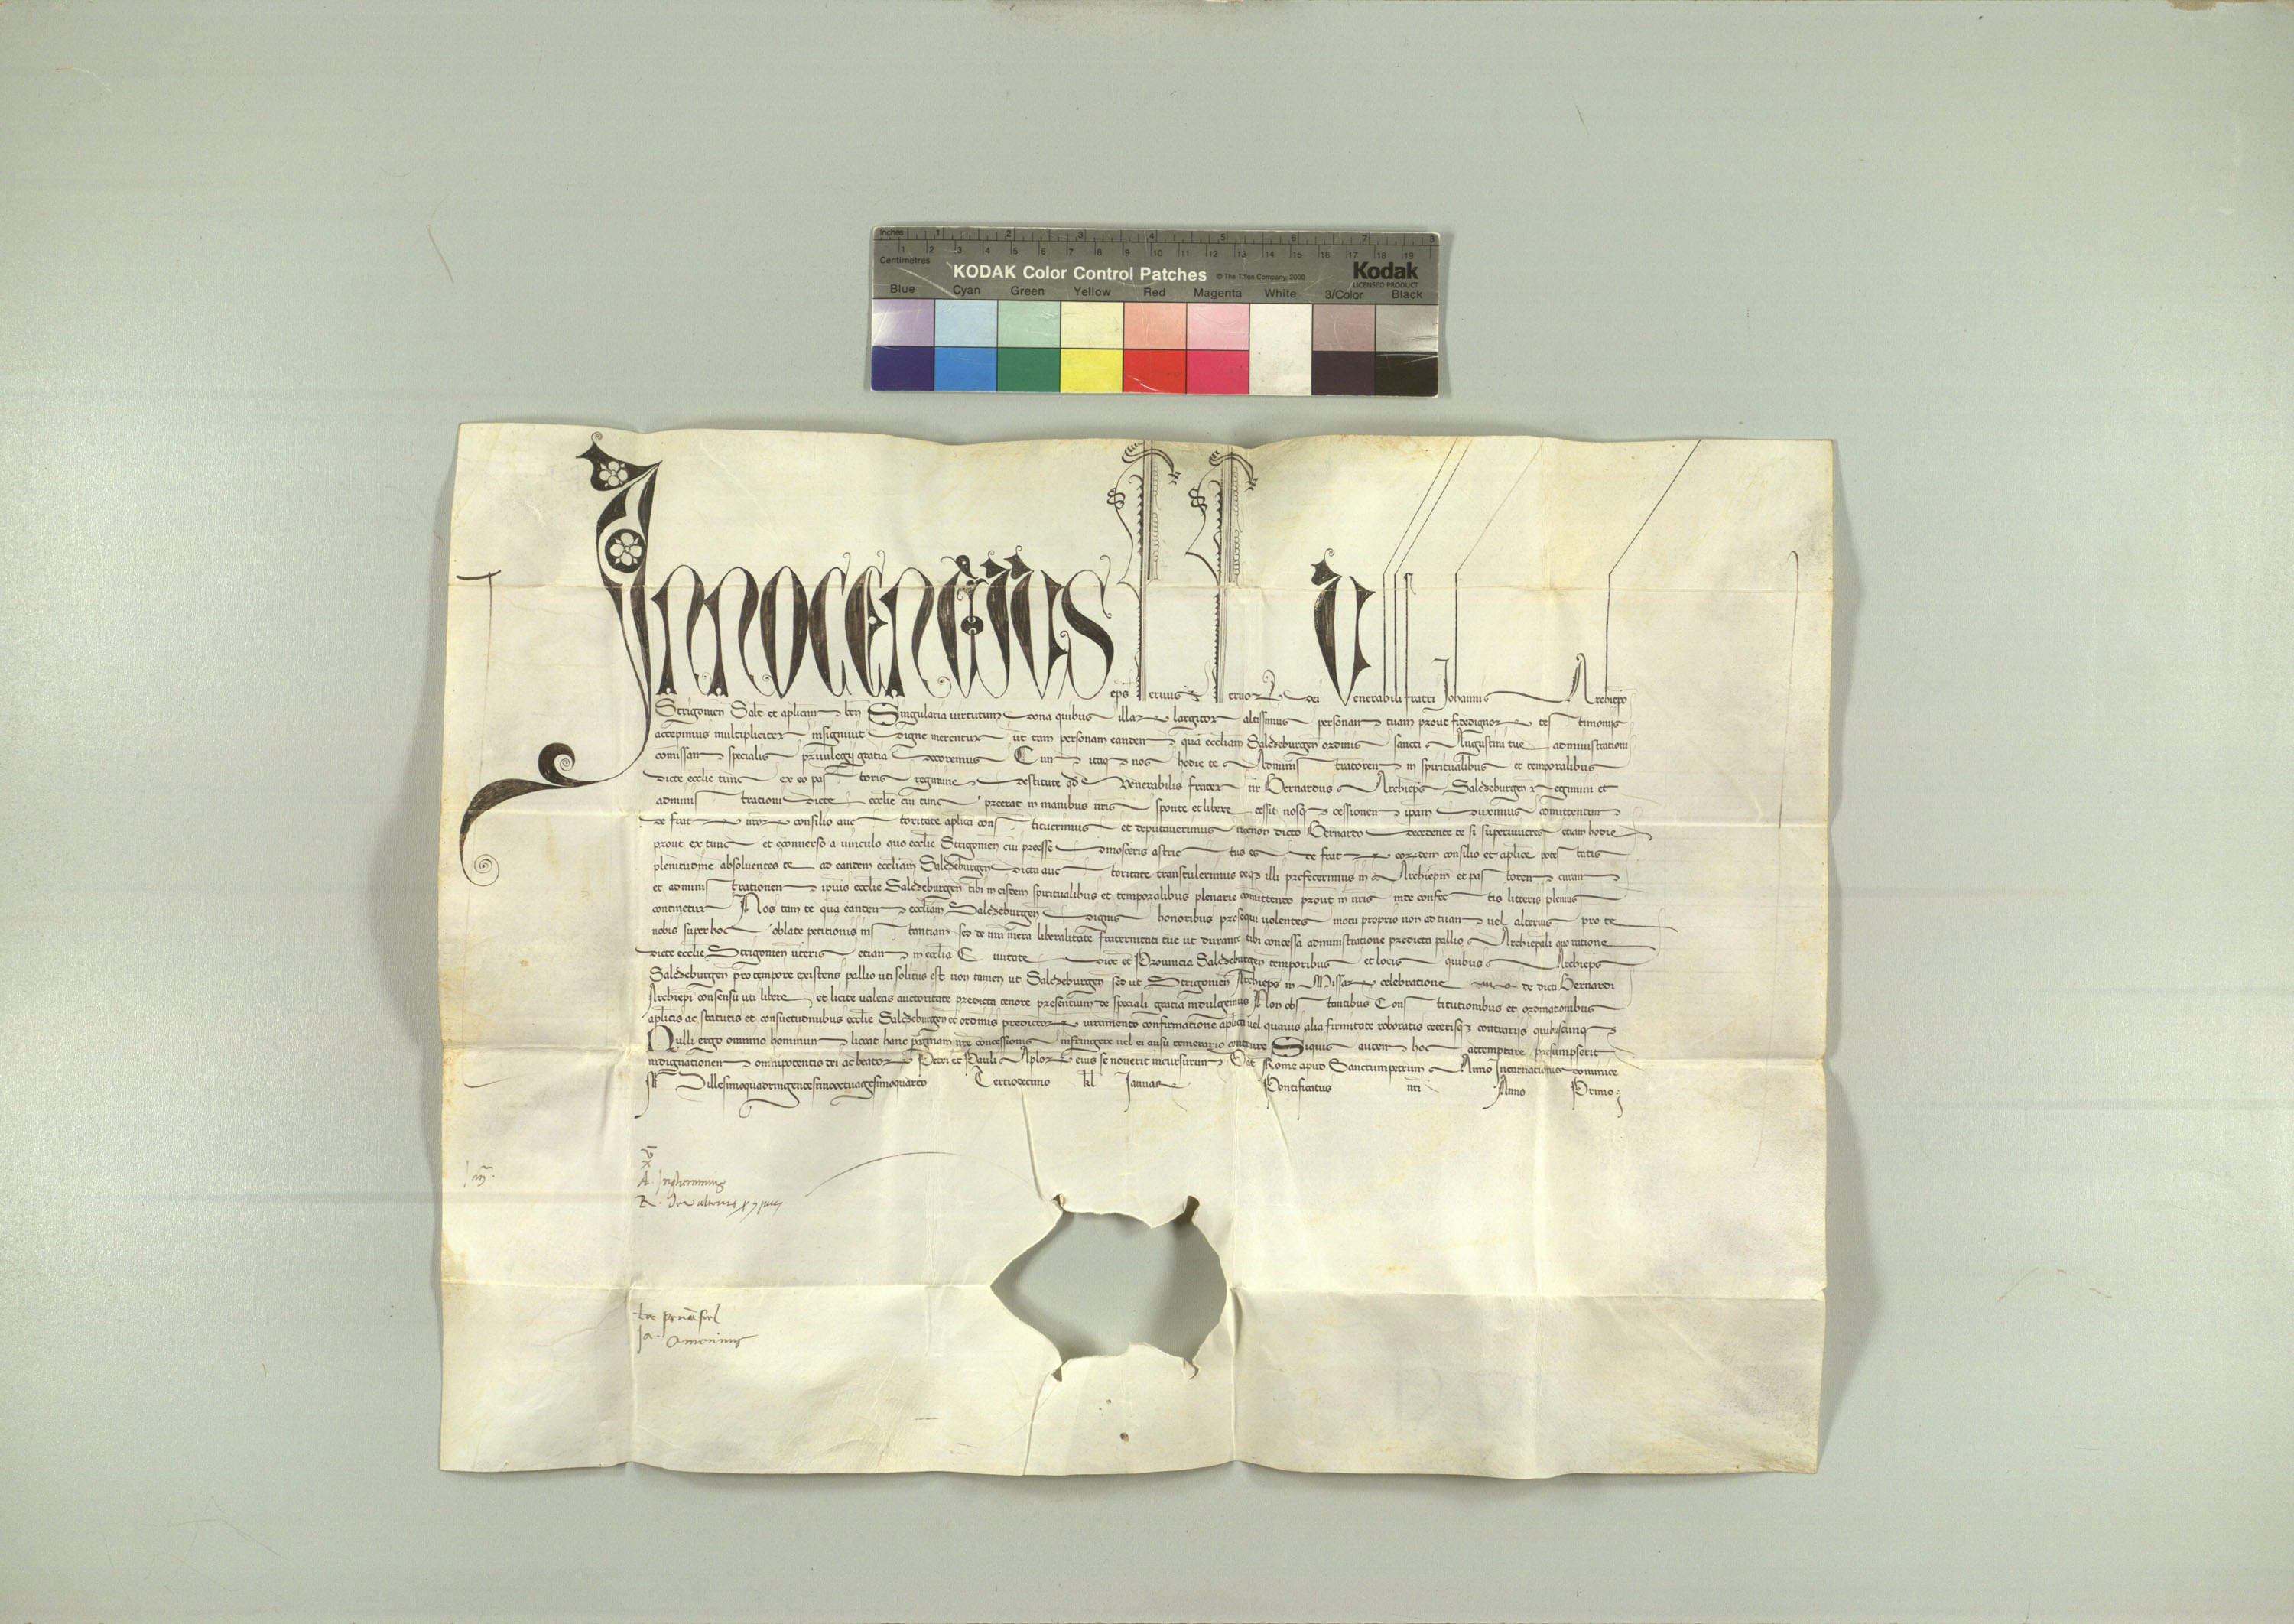 Inches 1 2 3 4 5 6 7 8
Centimetres 1 2 3 4 5 6 7 8 9 10 11 12 13 14 15 16 17 18 19
KODAK Color Control Patches © The Tiffen Company, 2000 Kodak
LICENSED PRODUCT
Blue Cyan Green Yellow Red Magenta White 3/Color Black
Innocentius eps seruus seruor dei Venerabili fratri Johanni Archiepo
Strigonien Salt et aplicam ben Singularia uirtutum dona quibus illar largitor altissimus personam tuam prout fidedignor testimoniis
accepimus multipliciter insigniuit digne merentur ut tam personam eandem qua eccliam Saltzeburgen ordinis sancti Augustini tue administrationi
comissam specialis priuilegij gratia decoremus Cum itaq nos hodie te Administratorem in spiritualibus et temporalibus
dicte ecclie tunc ex eo pastoris regimine destitute qd Venerabilis frater nr Bernardus Archieps Saltzeburgen regimini et
administrationi dicte ecclie cui tunc preerat in manibus nris sponte et libere cessit nosq cessionem ipam duximus comittentium
de fratr nror consilio auctoritate aplica constituerimus et deputauerimus necnon dicto Bernardo decedente te si superuiueres etiam hodie
prout ex tunc et econuerso a uinculo quo ecclie Strigonien cui preesse dinosceris astrictus es de fratr eordem consilio et aplice potestatis
plenitudine absoluentes te ad eandem eccliam Saltzeburgen dicta auctoritate transtulerimus teq illi prefecerimus in Archiepm et pastorem curam
et administrationem ipius ecclie Saltzeburgen tibi in eisdem spiritualibus et temporalibus plenarie comittendo prout in nris inde confectis litteris plenius
continetur Nos tam te qua eandem eccliam Saltzeburgen dignis honoribus prosequi uolentes motu proprio non ad tuam uel alterius pro te
nobis super hoc oblate petitionis instantiam sed de nra mera liberalitate fraternitati tue ut durante tibi concessa administratione predicta pallio Archiepali quo ratione
dicte ecclie Strigonien uteris etiam in ecclia Ciuitate dioc et Prouincia Saltzeburgen temporibus et locis quibus Archieps
Saltzeburgen pro tempore existens pallio uti solitus est non tamen ut Saltzeburgen sed ut Strigonien Archieps in Missar celebratione de dicti Bernardi
Archiepi consensu uti libere et licite ualeas auctoritate predicta tenore presentium de speciali gratia indulgemus Non obstantibus Constitutionibus et ordinationibus
aplicis ac statutis et consuetudinibus ecclie Saltzeburgen et ordinis predictor iuramento confirmatione aplica uel quauis alia firmitate roboratis ceterisq contrariis quibuscunq
Nulli ergo omnino hominum liceat hanc paginam nre concessionis infringere uel ei ausu temerario contraire Siquis autem hoc attemptare presumpserit
indignationem omnipotentis dei ac beator Petri et Pauli Aplor eius se nouerit incursurum Dat Rome apud Sanctumpetrum Anno Incarnationis dominice
Millesimoquadringentesimooctuagesimoquarto Tertiodecimo kl Januar Pontificatus nri Anno Primo